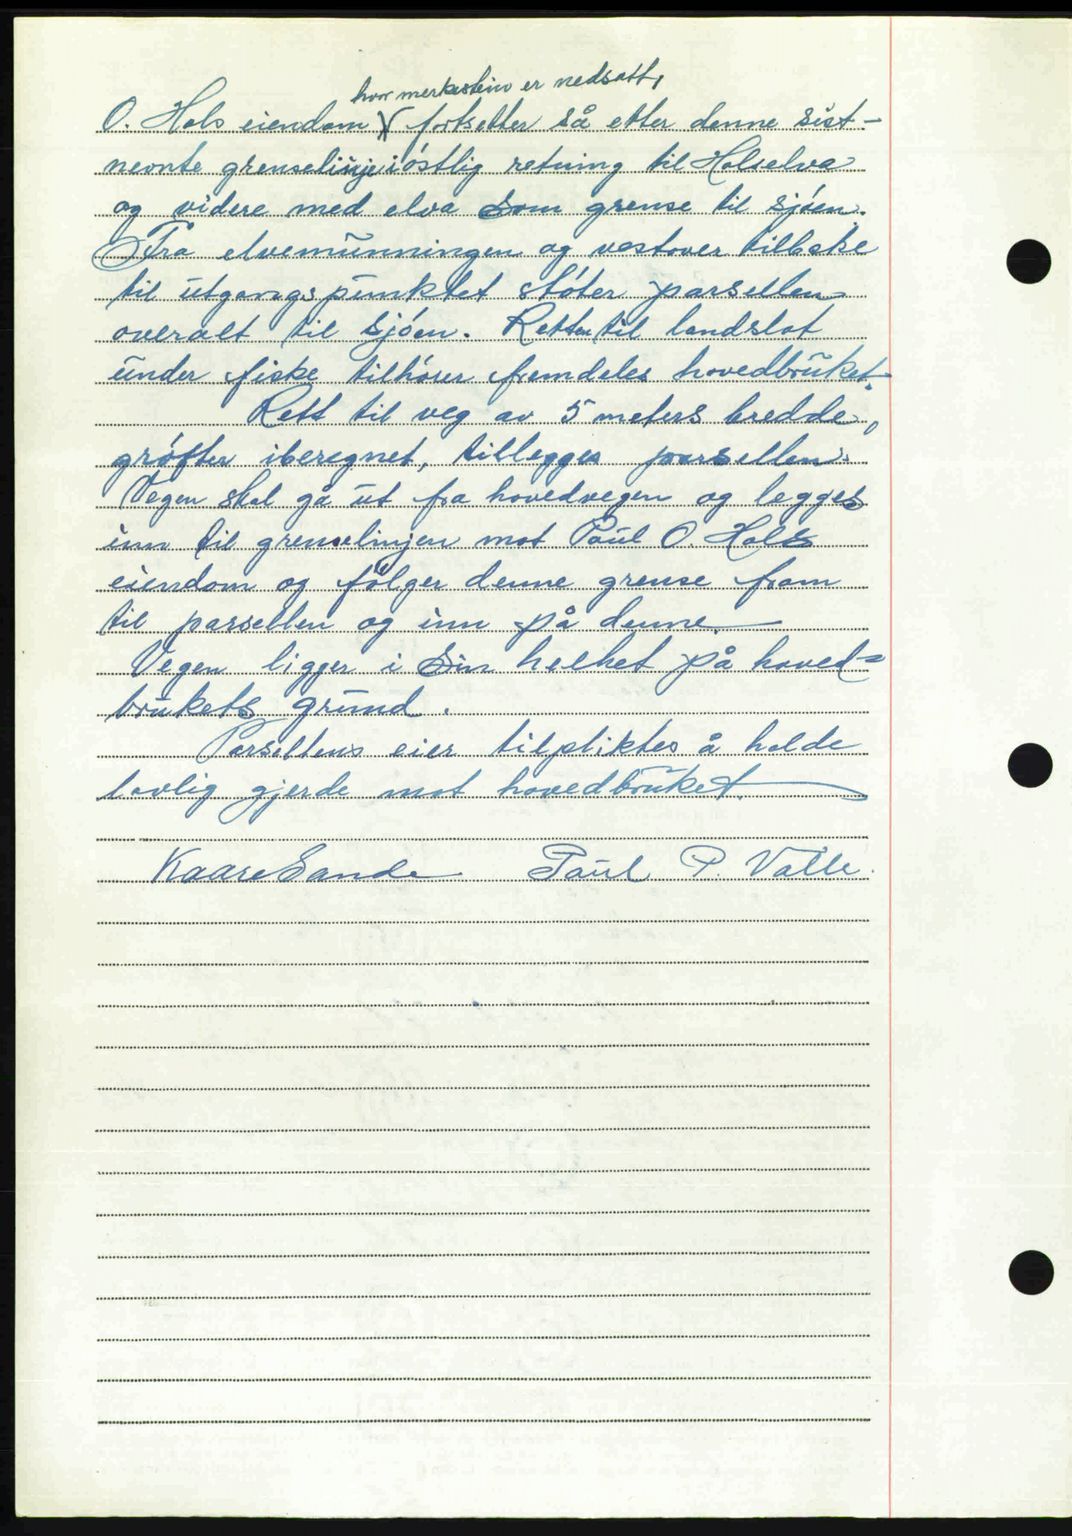 hvor merkestein er nedsatt,
O. Hols eiendom V fortsetter så etter denne sist-
nevnte grenselinje i østlig retning til Holselva
og videre med elva som grense til sjøen.
Fra elvemunningen og vestover tilbake
til utgangspunktet støter parsellen
overalt til sjøen. Retten til landslot
under fiske tilhører fremdeles hovedbruket.
Rett til veg av 5 meters bredde,
grøfter iberegnet, tillegges parsellen.
Vegen skal gå ut fra hovedvegen og legges
inn til grenselinjen mot Paul O. Hols
eiendom og følger denne grense fram
til parsellen og inn på denne.
Vegen ligger i sin helhet på hoved=
brukets grunn.
Parsellens eier tilpliktes å holde
lovlig gjerde mot hovedbruket.
Kaare Sande Paul P. Valle.